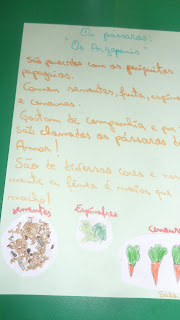 "Os pássaros:
"Os Agapornis"
São parecidos com os periquitos
papagaios.
Comem sementes, fruta, espina
e cenouras.
Gostam de companhia e por
são chamados os pássaros d
Amor!
São de diversas cores e nor
mente a fêmea é maior que
macho!
sementes
Espinafres
Cenour